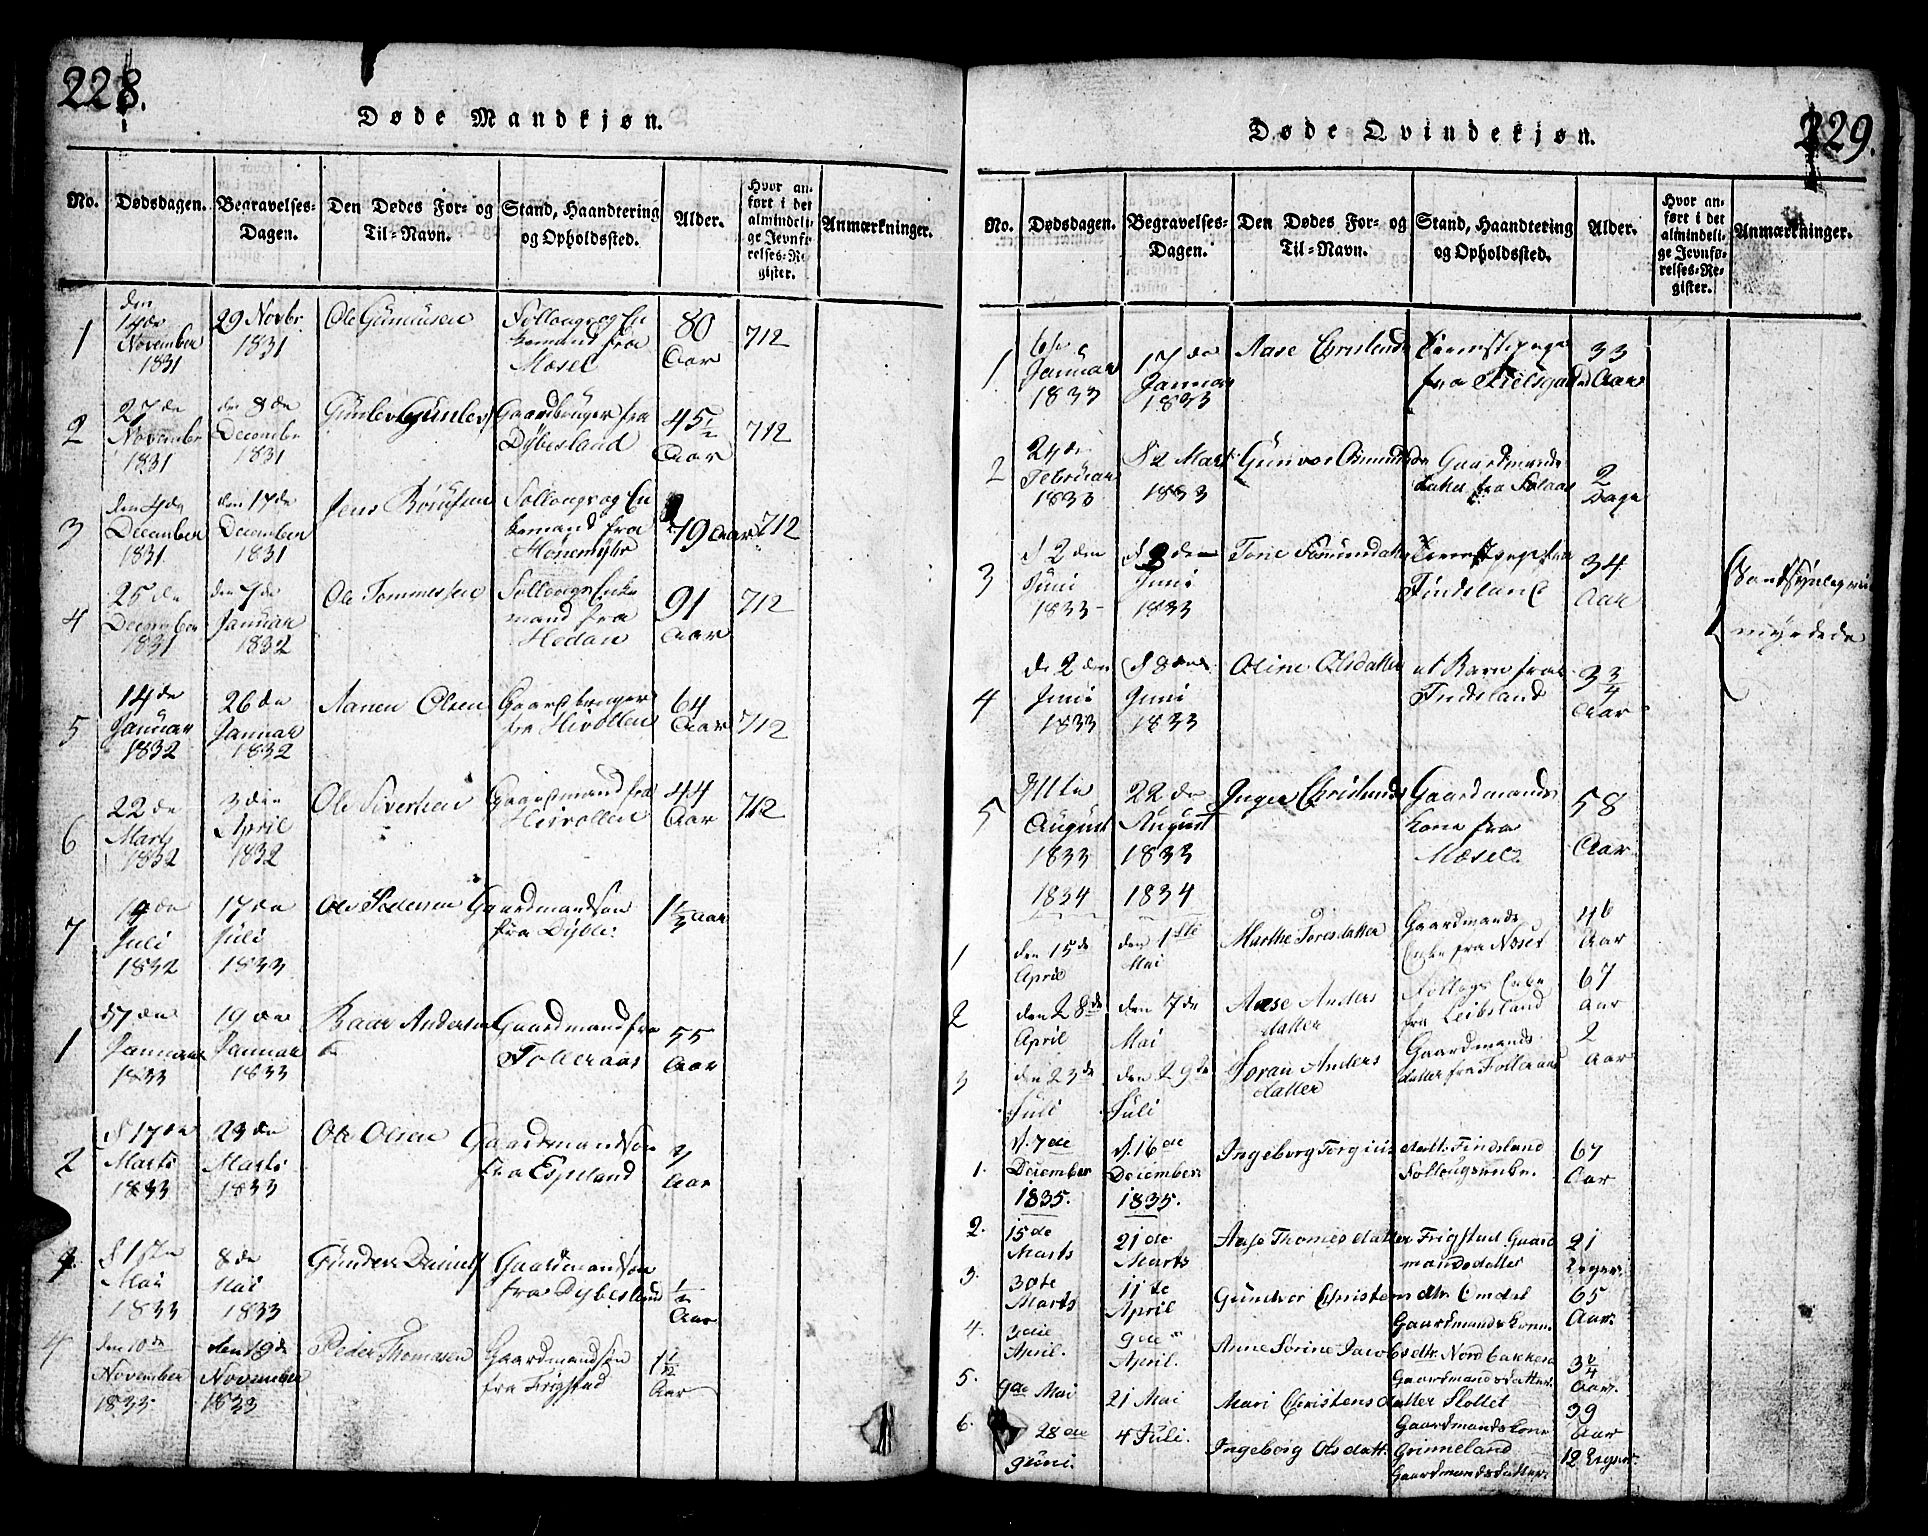 228.
Døde Mandkjøn.
No. Dødsdagen. Begravelses-Dagen. Den Dødes For- og Til-Navn. Stand, Haandtering og Opholdssted. Alder. Hvor anført i det almindelige Jevnførelses-Register. Anmærkninger.
1 den 14de November 1831 29 Novbr 1831 Ole Gunusen Følloug og Enkemand fra Mosel 80 Aar 712
2 27de November 1831 den 8de Decembr 1831 Gunlev Gunlevs Gaardbruger fra Dybesland 45½ Aar 712
3 den 4de December 1831 den 17de December 1831 Jens Følloug og Enkemand fra Honemyhr 79 Aar 712
4 25de December 1831 den 7de Januar 1832 Ole Tommessen Føllougs Enkemand fra Hedan 91 Aar 712
5 14de Januar 1832 26de Januar 1832 Aanen Olsen Gaardbruger fra Hivollen 64 Aar 712
6 22de Marts 1832 3die April 1832 Ole Sivertsen Gaardmand fra Hivollen 44 Aar 712
7 19de Juli 1832 17de Juli 1833 Ole Pedersen Gaardmandsøn fra Dyble: 1½ Aar
1 d 7den Januar 1833 19de Januar 1833 Baar Andersen Gaardmand fra Folleraas 55 Aar
2 d 17de Marts 1833 23de Marts 1833 Ole Olsen Gaardmandsøn fra Espeland Aar
3 d 1ste Mai 1833 8de Mai 1833 Gunder Daniels Gaardmandsøn fra Dybesland ½ Aar
4 den 10de November 1833 den 19de November 1833 Peder Thomasen Gaardmandsøn fra Frigstad 1½ Aar
229.
Døde Qvindekjøn.
No. Dødsdagen. Begravelses-Dagen. Den Dødes For- og Til-Navn. Stand, Haandtering og Opholdssted. Alder. Hvor anført i det almindelige Jevnførelses-Register. Anmærkninger.
1 6te Januar 1833 17de Januar 1833 Aase Christensd Tjenestepige fra Kielsgaard 33 Aar
2 24de Februar 1833 d 2 Mart 1833 Gunvor Osmundsd Gaardmands datter fra Solaas 2 Dage
3 d 2den Juni 1833 d 8den Juni 1833 Tone Samundatter Tjenestepige fra Findsland 34 Aar
4 de 2den Juni 1833 d 8de Juni 1833 Oline Olsdatter et Barn fra Findsland 3¾ Aar
Sandsynlegvis myrdede
5 d 11te August 1833 22de August 1833 Inger Christensd Gaardmands kone fra Mosel 58 Aar
1834 1834
1 den 15de April den 1ste Mai Marthe Toresdatter Gaardmands Enke fra Noset 46 Aar
2 den 28de April den 7de Mai Aase Andersdatter Føllogs Enke fra Leibsland 67 Aar
3 den 23de Juli den 29de Juli Joran Andersdatter Gaardmands datter fra Folleraas 2 Aar
1. d. 7de December 1835. d. 16de December 1835. Ingeborg Torgius datt: Findsland Føllougsenke. 67 Aar
2. 15de Marts 21de Marts Aase Thomesdatter Frigstad Gaardmandsdatter 21 Uger.
3. 30te Marts 11te April Gunder Christens dtr. Omdal Gaardmandskone. 65 Aar.
4. 3die April. 9de April. Anne Sørine Jacobsdtr. Nordbakken Gaardmandsdatter. 3¾ Aar.
5. 9de Mai 21 Mai Mari Christensdatter Slottet Gaardmandskone 39 Aar
6. 28de Juni. 4 Juli. Ingeborg Olsdatt. Grimeland Gaardmandsdatter. 12 Uger.